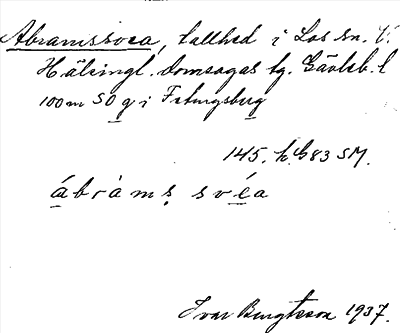 Abramssvea, tallhed i Los sn. V.
Hälsingl. domsagas tg. Gävleb. l
100 m SO g i Fetungsberg
145. h. G83 SM.
ábràmṣ svéa
Ivar Bengtsson 1937.